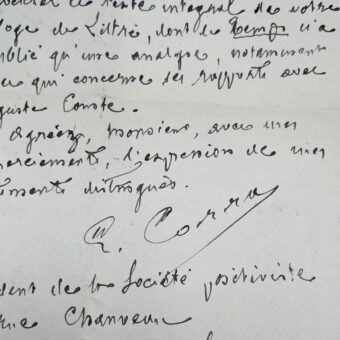 texte intégral de votre
loge de Littré, dont le Temps n'a
blié qu'une analyse, notamment
ce qui concerne ses rapports avec
guste Comte.
Agréez, Monsieur, avec mes
merciements, l'expression de mes
timents distingués.
E. Corra
dent de la Société positiviste
rue Chanveau